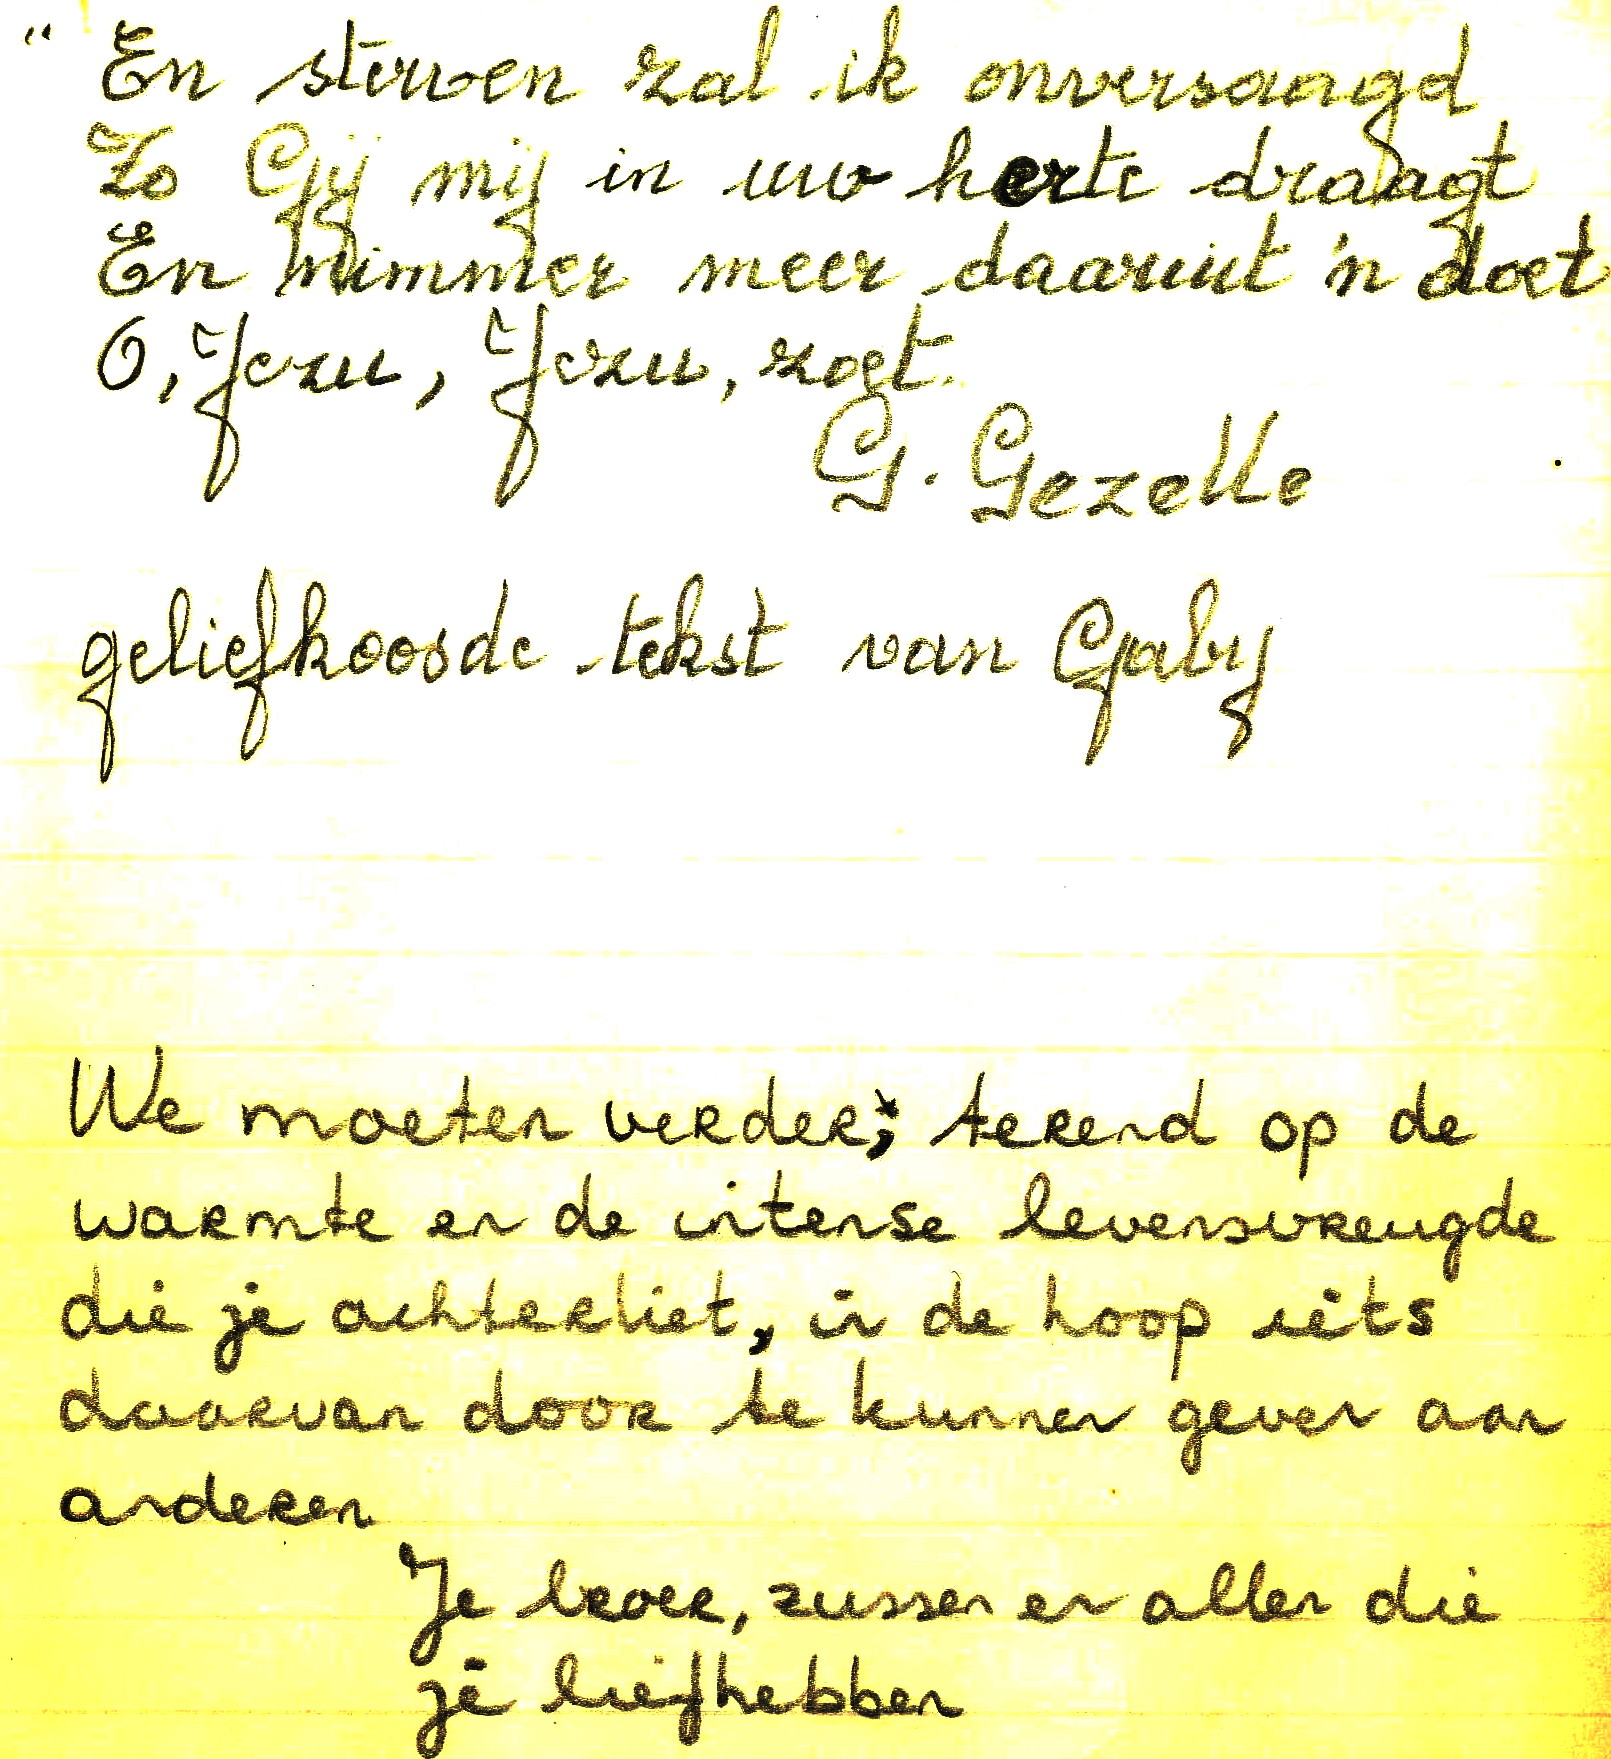 " En sterven zal ik onversaagd
Zo Gij mij in uw herte draagt
En nimmer meer daaruit 'n doet
O, Jezu, Jezu, zoet.
G. Gezelle
geliefkoosde tekst van Gaby
We moeten verder, terend op de
warmte en de intense levensvreugde
die je achterliet, in de hoop iets
daarvan door te kunnen geven aan
anderen
Je broer, zussen en allen die
je liefhebben